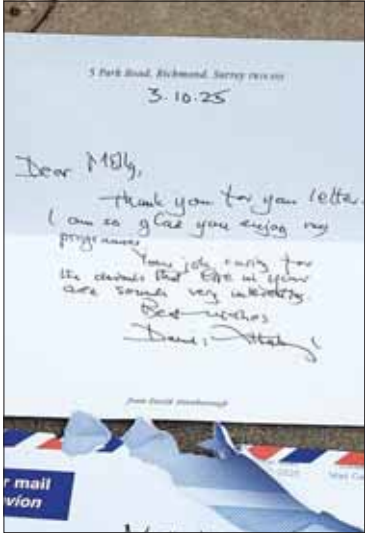 5 Park Road, Richmond, Surrey
3.10.25
Dear Molly,
Thank you for your letter.
I am so glad you enjoy my
programmes
Your job caring for
the animals that live in your
area sounds very interesting
Best wishes
David Attenborough
from David Attenborough
r mail
avion